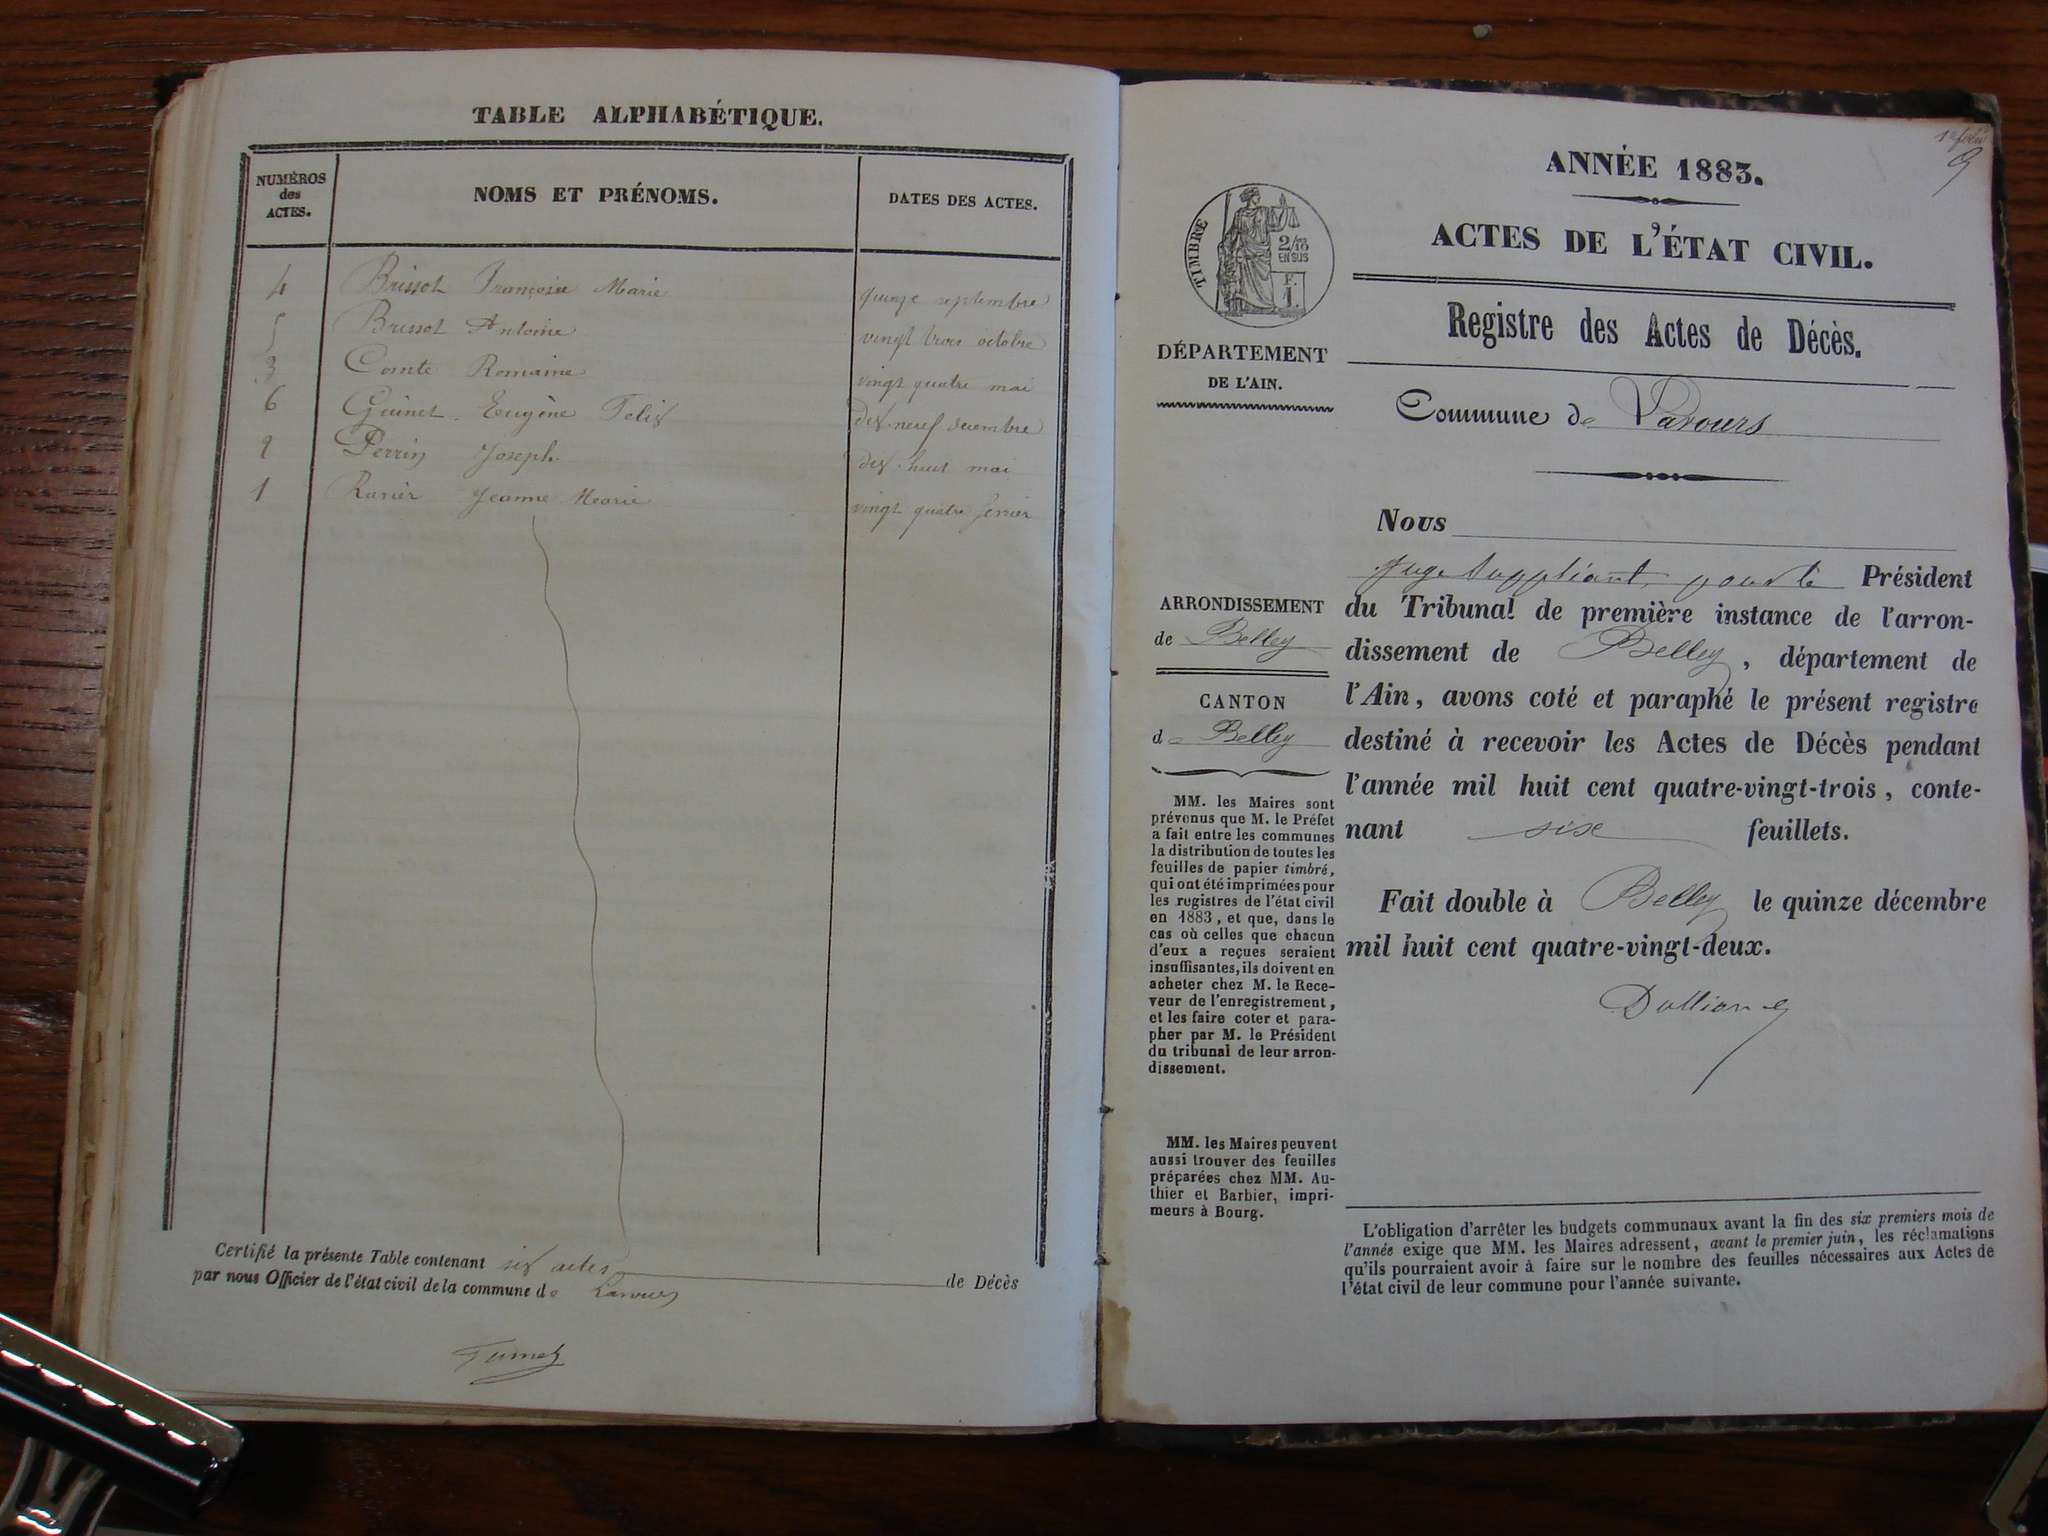 TABLE ALPHABÉTIQUE.
NUMÉROS des ACTES.
NOMS ET PRÉNOMS.
DATES DES ACTES.
4 Brissot Françoise Marie quinze septembre
5 Brissot Antoine vingt trois octobre
3 Comte Romaine vingt quatre mai
6 Guinet Eugène Félix dix-neuf décembre
2 Perrin Joseph dix-huit mai
1 Jeanne Marie vingt quatre
Certifié la présente Table contenant six actes de Décès
par nous Officier de l'état civil de la commune de Lavours
ANNÉE 1883.
ACTES DE L'ÉTAT CIVIL.
Registre des Actes de Décès.
TIMBRE
2/10
EN SUS
F.
1.
DÉPARTEMENT
DE L'AIN.
Commune de Lavours
Nous
Juge Suppléant, pour le Président
du Tribunal de première instance de l'arron-
dissement de Belley, département de
l'Ain, avons coté et paraphé le présent registre
destiné à recevoir les Actes de Décès pendant
l'année mil huit cent quatre-vingt-trois, conte-
nant six feuillets.
Fait double à Belley le quinze décembre
mil huit cent quatre-vingt-deux.
ARRONDISSEMENT
de Belley
CANTON
de Belley
MM. les Maires sont
prévenus que M. le Préfet
a fait entre les communes
la distribution de toutes les
feuilles de papier timbré,
qui ont été imprimées pour
les registres de l'état civil
en 1883, et que, dans le
cas où celles que chacun
d'eux a reçues seraient
insuffisantes, ils doivent en
acheter chez M. le Rece-
veur de l'enregistrement,
et les faire coter et para-
pher par M. le Président
du tribunal de leur arron-
dissement.
MM. les Maires peuvent
aussi trouver des feuilles
préparées chez MM. Au-
thier et Barbier, impri-
meurs à Bourg.
L'obligation d'arrêter les budgets communaux avant la fin des six premiers mois de
l'année exige que MM. les Maires adressent, avant le premier juin, les réclamations
qu'ils pourraient avoir à faire sur le nombre des feuilles nécessaires aux Actes de
l'état civil de leur commune pour l'année suivante.